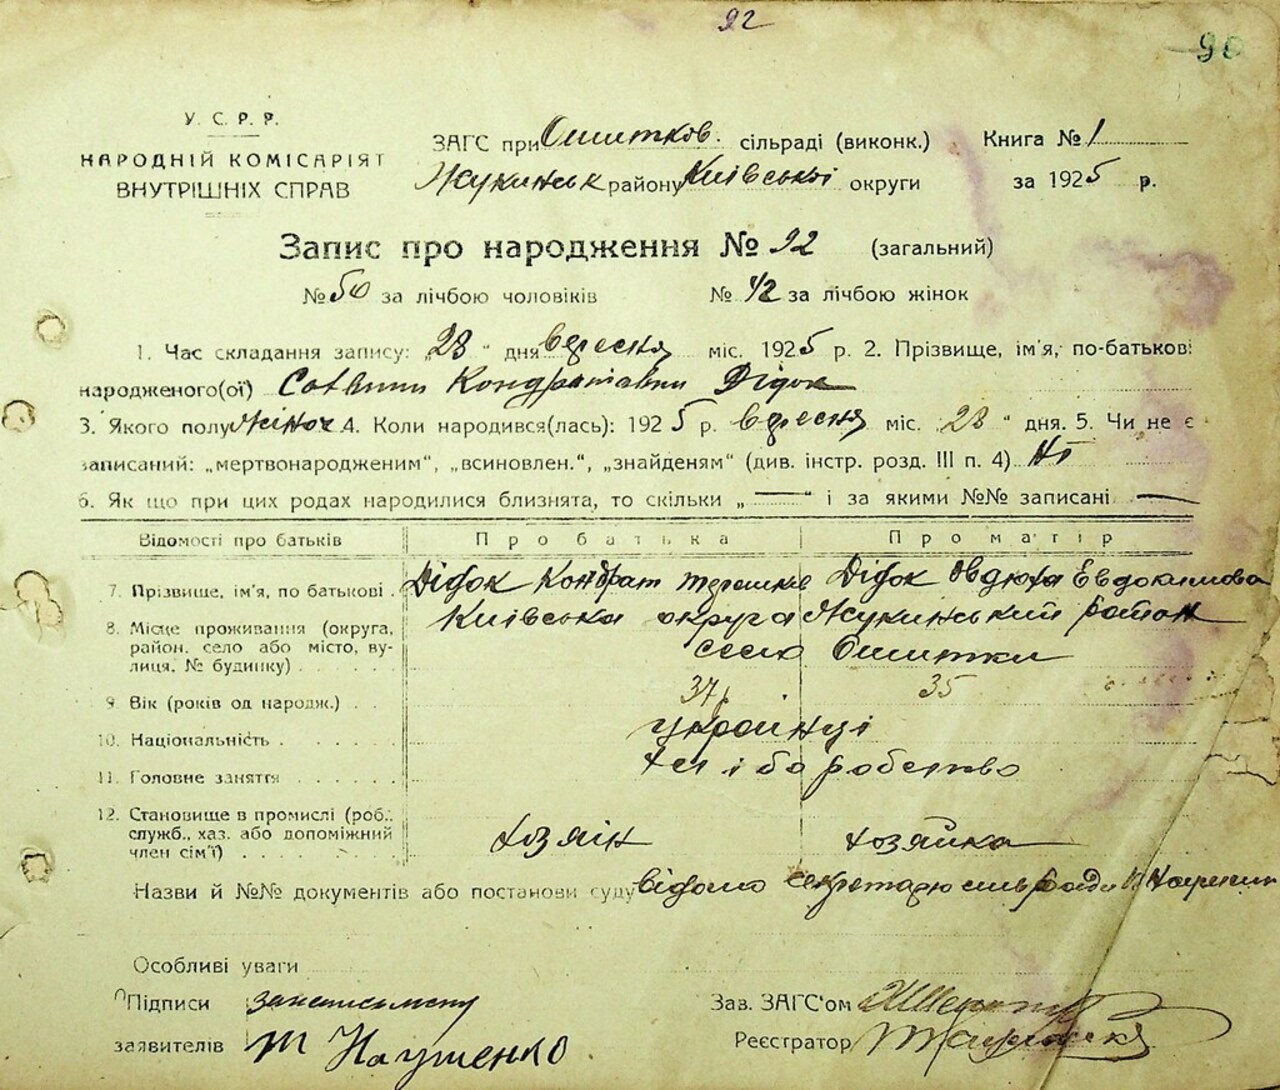 92
90
У. С. Р. Р.
НАРОДНІЙ КОМІСАРІЯТ
ВНУТРІШНІХ СПРАВ
ЗАГС при Ошитков. сільраді (виконк.)
Жукинськ району Київської округи
Книга № 1
за 1925 р.
Запис про народження № 92 (загальний)
№ 50 за лічбою чоловіків № 42 за лічбою жінок
1. Час складання запису: „28" дня вересня міс. 1925 р. 2. Прізвище, ім'я, по-батькові
народженого(ої) Кондратовни Дідок
3. Якого полу жіноч. 4. Коли народився(лась): 1925 р. вересня міс. 28" дня. 5. Чи не є
записаний: „мертвонародженим", „всиновлен.", „знайденям" (див. інстр. розд. III п. 4) Ні
6. Як що при цих родах народилися близнята, то скільки „—" і за якими №№ записані —
Відомості про батьків Про батька Про матір
7. Прізвище, ім'я, по батькові . Дідок Кондрат Дідок Овдюха Евдокимова
8. Місце проживання (округа, район, село або місто, вулиця, № будинку) . . . . . Київська округа Жукинський район
село Ошитки
9. Вік (років од народж.) . . 37 35
10. Національність . . . . . . українці
11. Головне заняття . . . . . . хліборобство
12. Становище в промислі (роб., служб., хаз. або допоміжний член сім'ї) . . . . . . . хозяїн хозяйка
Назви й №№ документів або постанови суду відомо секретарю сильради
Особливі уваги
Підписи
заявителів Т Науменко
Зав. ЗАГС'ом
Реєстратор